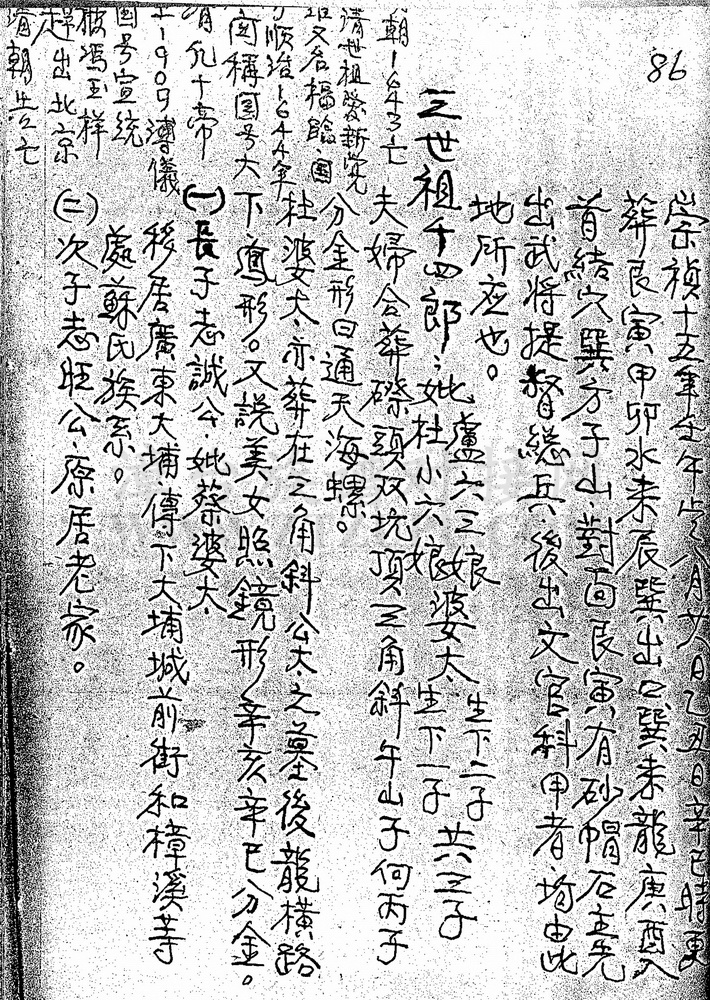 86
崇禎十五年壬午歲八月廿八日乙丑日辛巳時更
葬艮寅甲卯水来辰巽出口巽来龍庚酉入
首結穴巽方子山對面艮寅有砂帽石主先
出武将提督総兵後出文官科甲者皆由此
地所应也。
三世祖千四郎：妣 盧六三娘 生下二子
杜小六娘婆太生下一子 共三子
夫婦合葬磜頭双坑頂三角斜午山子向丙子
分金形曰通天海螺。
杜婆太亦葬在三角斜公太之墓後龍橫路
下鳳形。又説美女照鏡形辛亥辛巳分金。
(一)長子志誠公妣蔡婆太
移居廣東大埔傳下大埔城前街和樟溪等
處蘇氏族系。
(二)次子志旺公原居老家。
朝1643亡
清世祖愛新覚
羅又名福臨國
号順治1644年
國号大
帝
1909溥儀
國号宣統
馮玉祥
趕出北京
清朝告亡